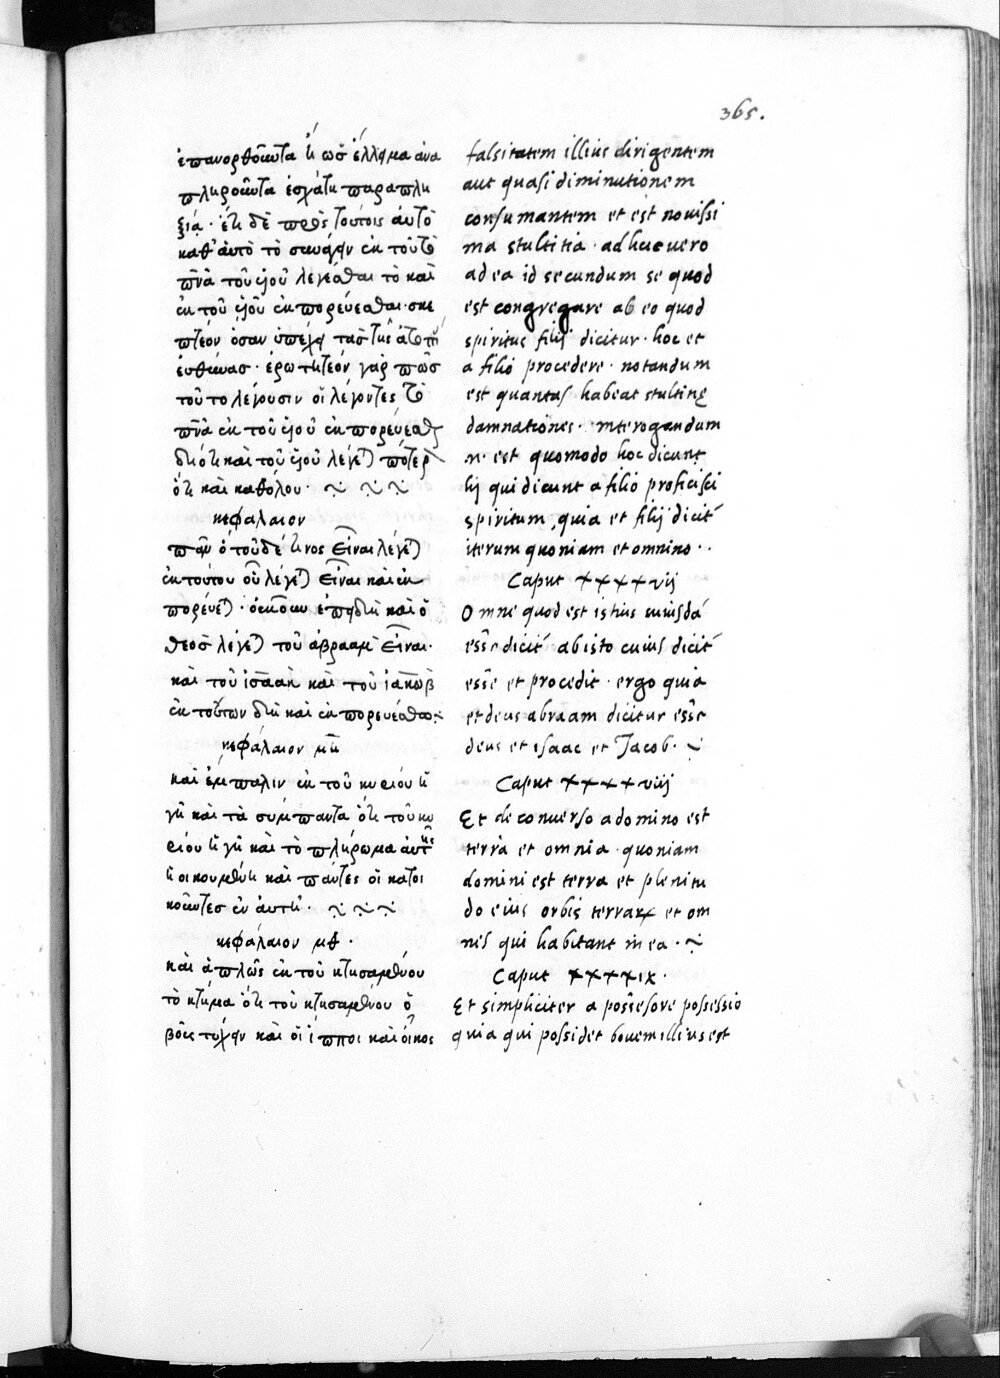 365.
ἐπανορθοῦντα ἢ ὡς ἔλλειμα ἀνα
πληροῦντα ἐσχάτη παραπλη
ξία· ἔτι δὲ πρὸς τούτοις αὐτὸ
καθ' αὑτὸ τὸ συνάγειν ἐκ τοῦ τὸ
πνα τοῦ υἱοῦ λέγεσθαι τὸ καὶ
ἐκ τοῦ υἱοῦ ἐκπορεύεσθαι· σκε
πτέον ὅσαν ὑπέχει τὰς τῆς
εὐθύνας· ἐρωτητέον γὰρ πῶς
τοῦτο λέγουσιν οἱ λέγοντες τὸ
πνα ἐκ τοῦ υἱοῦ ἐκπορεύεσθαι
διότι καὶ τοῦ υἱοῦ λέγεται πότερον
ὅτι καὶ καθόλου·
κεφάλαιον
πᾶν ὃ τοῦδέ τινος εἶναι λέγεται
ἐκ τούτου οὗ λέγεται εἶναι καὶ ἐκ
πορεύεται· οὐκοῦν ἐπειδὴ καὶ ὁ
θεὸς λέγεται τοῦ ἀβραὰμ εἶναι·
καὶ τοῦ ἰσαὰκ καὶ τοῦ ἰακὼβ
ἐκ τούτων δὴ καὶ ἐκπορευέσθω·
κεφάλαιον μη
καὶ ἔμπαλιν ἐκ τοῦ κυρίου ἡ
γῆ καὶ τὰ σύμπαντα ὅτι τοῦ κυ
ρίου ἡ γῆ καὶ τὸ πλήρωμα αὐτῆς
ἡ οἰκουμένη καὶ πάντες οἱ κατοι
κοῦντες ἐν αὐτῇ·
κεφάλαιον μθ·
καὶ ἁπλῶς ἐκ τοῦ κτησαμένου
τὸ κτῆμα ὅτι τοῦ κτησαμένου ὁ
βοῦς τυχὸν καὶ οἱ ἵπποι καὶ ὁ οἶκος
falsitatem illius dirigentem
aut quasi diminutionem
consumantem et est novissi
ma stultitia· adhuc vero
ad ea id secundum se quod
est congregare ab eo quod
spiritus filij dicitur· hoc et
a filio procedere· notandum
est quantas habeat stultitię
damnationes· interogandum
n· est quomodo hoc dicunt
hij qui dicunt a filio proficisci
spiritum, quia et filij dicit̃
iterum quoniam et omnino··
Caput xxxxvij
Omne quod est istius cuiusdã
esse dicit̃ ab isto cuius dicit̃
esse et procedit· ergo quia
et deus abraam dicitur esse
deus et isaac et Jacob·
Caput xxxxviij
Et de converso a domino est
terra et omnia· quoniam
domini est terra et plenitu
do eius orbis terraꝝ et om
nes qui habitant in ea·
Caput xxxxix·
Et simpliciter a possessore possessio
quia qui possidet bovem illius est